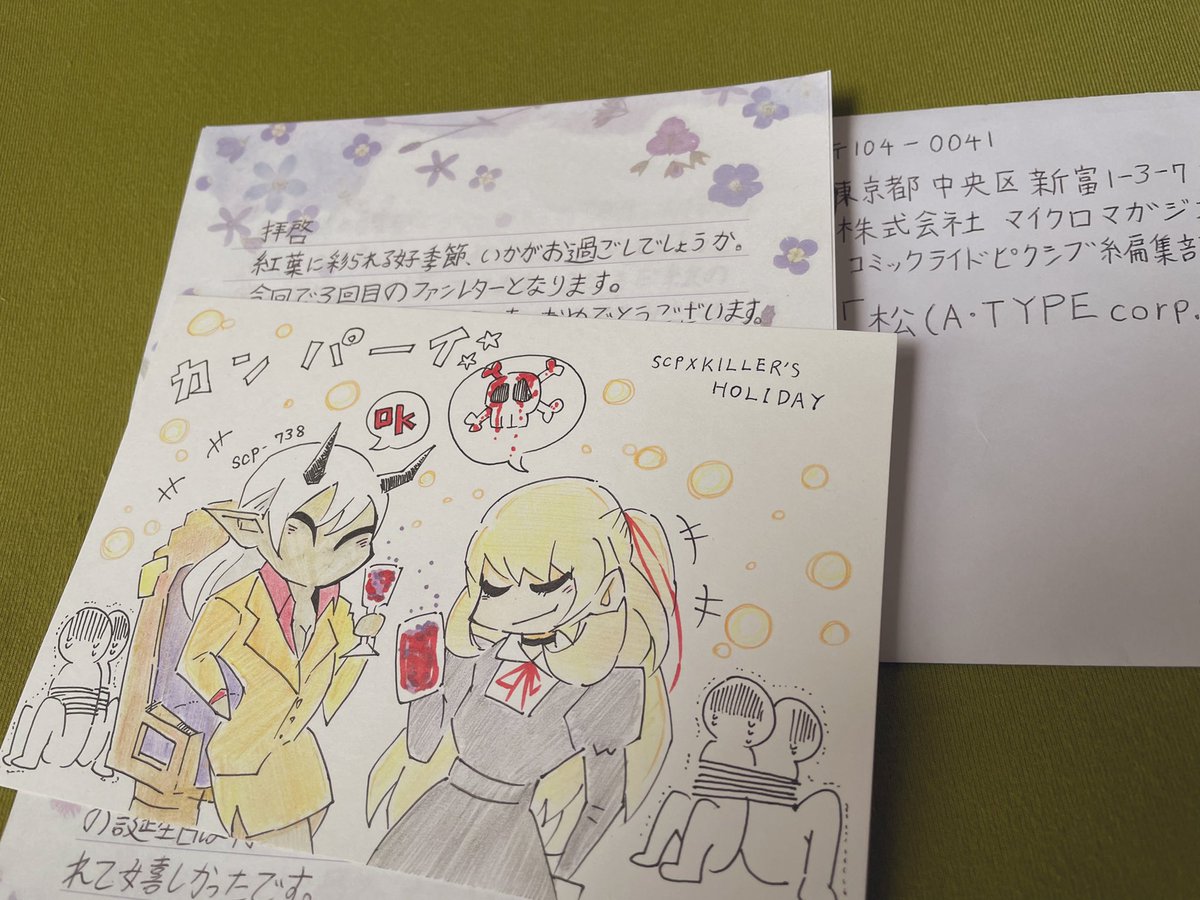 拝啓
紅葉に彩られる好季節、いかがお過ごしでしょうか。
今回で3回目のファンレターとなります。
おめでとうございます。
カンパーイ☆☆
SCP×KILLER'S
HOLIDAY
SCP-738
OK
の誕生日
れて嬉しかったです。
〒104-0041
東京都中央区新富1-3-7
株式会社 マイクロマガジ
コミックライドピクシブ編集部
「松(A・TYPE corp.